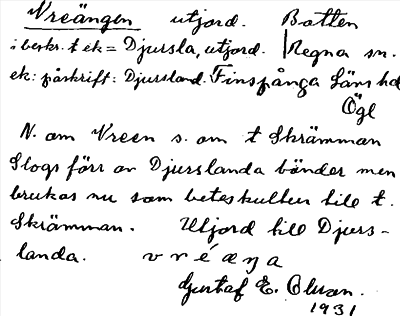 Vreängen utjord. Botten
i beskr. t ek = Djursla, utjord. Regna sn.
ek: påskrift: Djursland. Finspånga Läns hd
Ögl
N. om Vreen s. om t Skrämman
Slogs förr av Djursslanda bönder men
brukas nu som beteskultur till t.
Skrämman. Utjord till Djurs-
landa. v r é æŋa
Gustaf E. Olsson.
1931